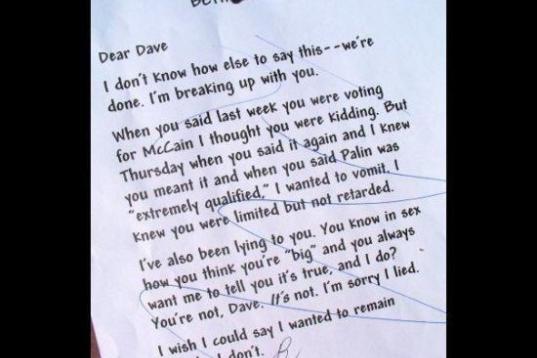 Dear Dave
I don't know how else to say this--we're
done. I'm breaking up with you.
When you said last week you were voting
for McCain I thought you were kidding. But
Thursday when you said it again and I knew
you meant it and when you said Palin was
"extremely qualified," I wanted to vomit. I
knew you were limited but not retarded.
I've also been lying to you. You know in sex
how you think you're "big" and you always
want me to tell you it's true, and I do?
You're not, Dave. It's not. I'm sorry I lied.
I wish I could say I wanted to remain
I don't.